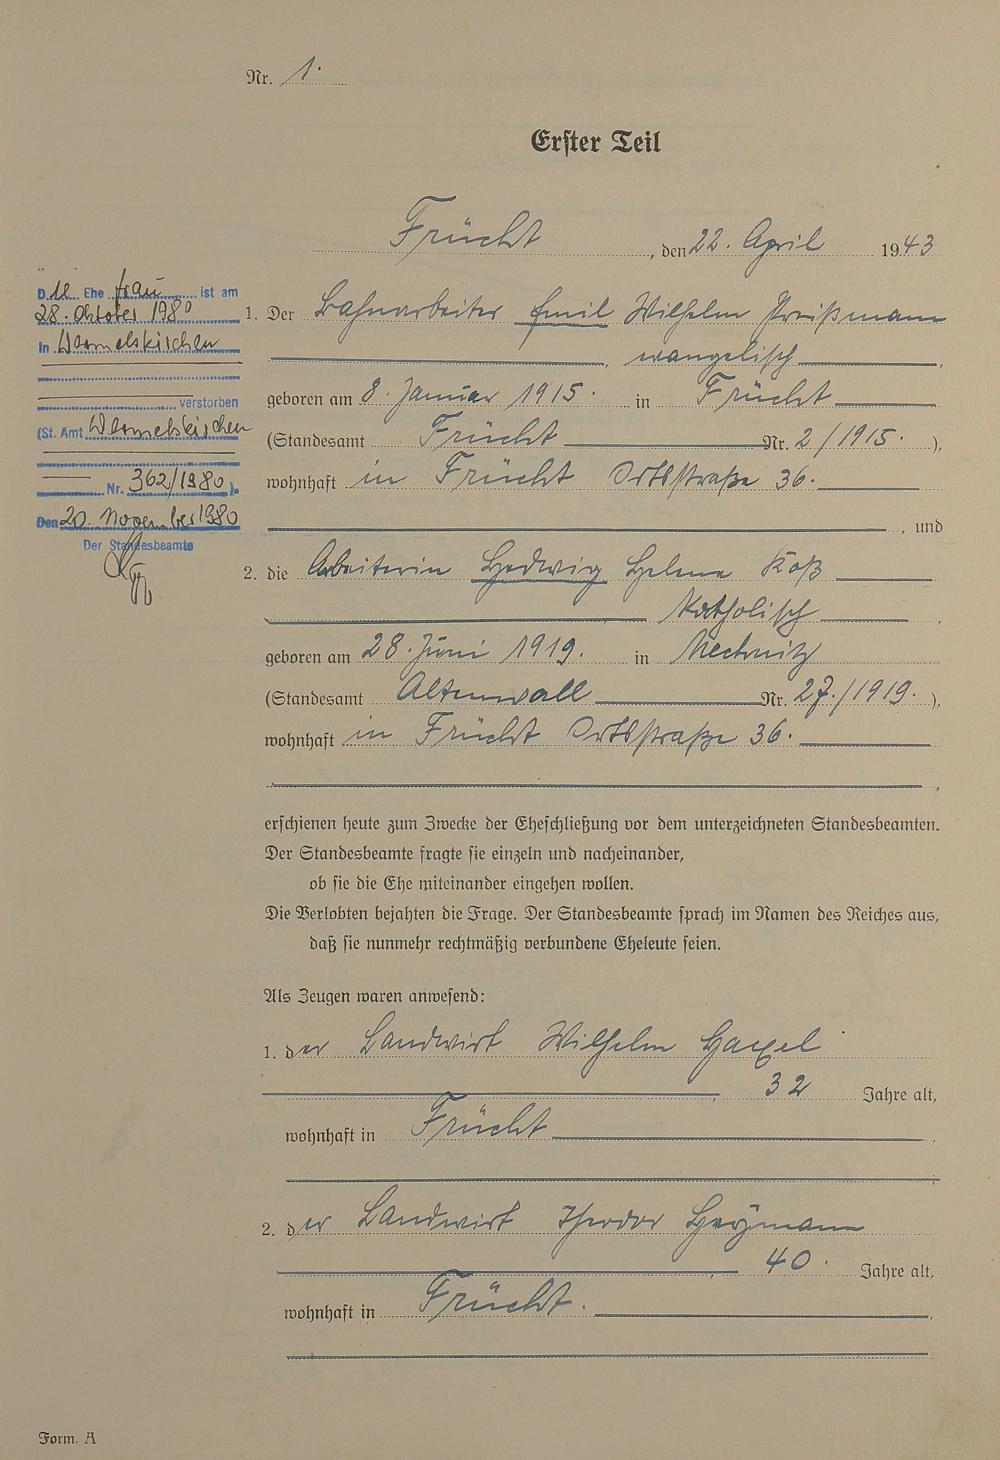 Nr. 1.
Erster Teil
Frücht, den 22. April 1943
Die Ehefrau ist am
28. Oktober 1980
in Wermelskirchen
verstorben
(St. Amt Wermelskirchen
Nr. 362/1980).
Den 20. November 1980
Der Standesbeamte
1. Der Bahnarbeiter Emil Wilhelm Preißmann
, evangelisch,
geboren am 8. Januar 1915. in Frücht
(Standesamt Frücht Nr. 2/1915.),
wohnhaft in Frücht Ortsstraße 36.
, und
2. die Arbeiterin Hedwig Helene Koß
Katholisch,
geboren am 28. Juni 1919. in
(Standesamt Altenwall Nr. 27./1919.),
wohnhaft in Frücht Ortsstraße 36.
,
erschienen heute zum Zwecke der Eheschließung vor dem unterzeichneten Standesbeamten.
Der Standesbeamte fragte sie einzeln und nacheinander,
ob sie die Ehe miteinander eingehen wollen.
Die Verlobten bejahten die Frage. Der Standesbeamte sprach im Namen des Reiches aus,
daß sie nunmehr rechtmäßig verbundene Eheleute seien.
Als Zeugen waren anwesend:
1. der Landwirt Wilhelm
, 32 Jahre alt,
wohnhaft in Frücht,
;
2. der Landwirt Theodor Heymann
, 40. Jahre alt,
wohnhaft in Frücht.,
Form. A